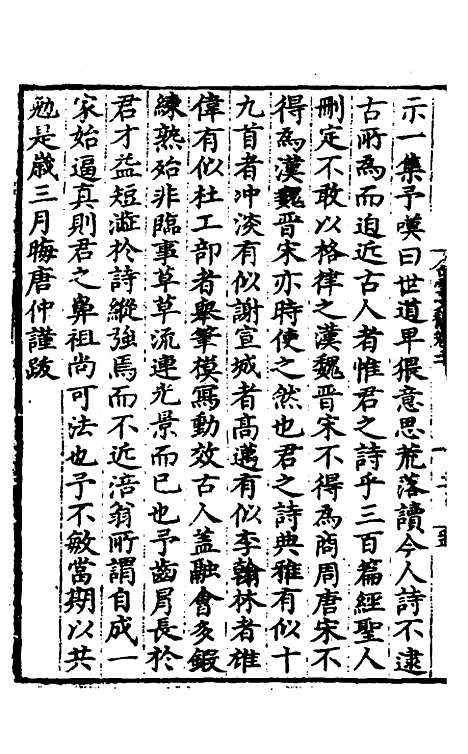 示一集予嘆曰世道卑猥意思荒落讀今人詩不逮
古所為而迫近古人者惟君之詩乎三百篇經聖人
刪定不敢以格律之漢魏晋宋不得為商周唐宋不
得為漢魏晋宋亦時使之然也君之詩典雅有似十
九首者冲淡有似謝宣城者高邁有似李翰林者雄
偉有似杜工部者舉筆模寫動效古人蓋融會多鍜
練熟殆非臨事草草流連光景而已也予齒肙長於
君才益短澁於詩縱強焉而不近涪翁所謂自成一
家始逼真則君之鼻祖尚可法也予不敏當期以共
勉是歲三月晦唐仲謹跋